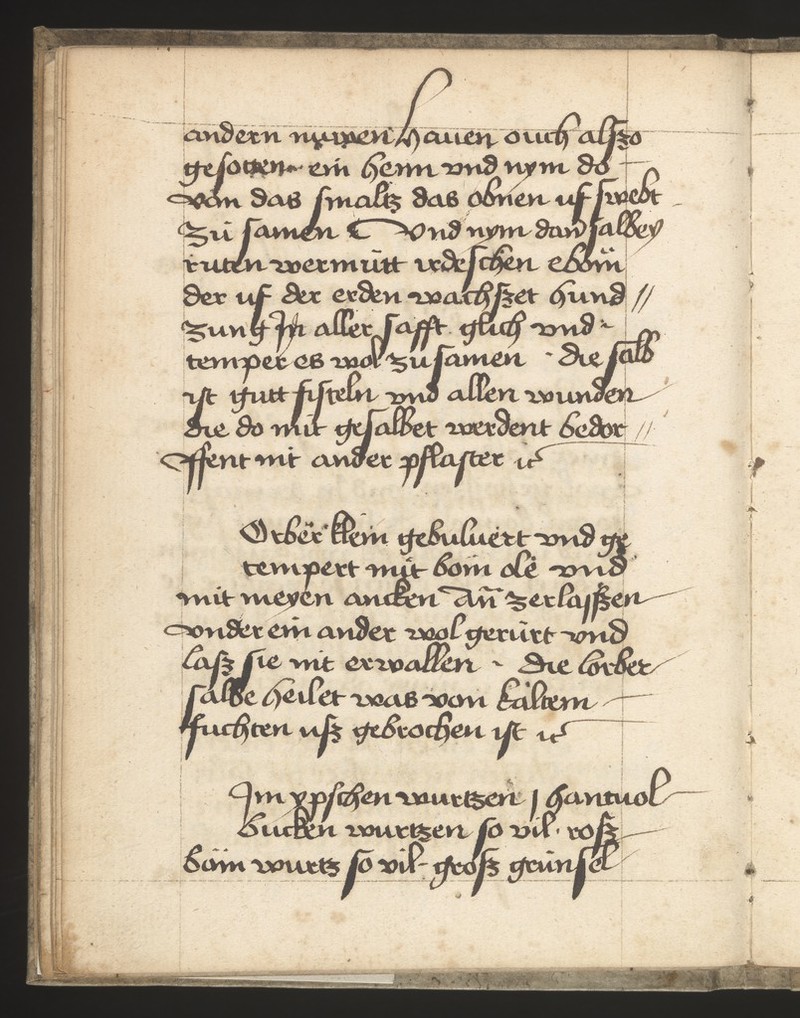 andern nuwen hauen ouch alszo
gesotten ein henn vnd nym do
von das smaltz das obnen uf swebt
zů samen Vnd nym dan salbey
ruten wermůtt irdeschen ebom
der uf der erden wachszet hund //
zung In aller safft glich vnd
temper es wol zů samen · die salb
ist gůtt fisteln vnd allen wunden
die do mit gesalbet werdent bedor //
ffent nit ander pflaster ꝛc
Orber klein gebuluert vnd ge
tempert mit bom ole vnd
mit meyen ancken Añ zerlasszen
vnder ein ander wol gerürt vnd
lasz sie nit erwallen · die lorber
salbe heilet was von kaltem
fuchten usz gebrochen ist ꝛc
Im ypschen wurtzen j hantuol
bucken wurtzen so vil · rosz
bom wurtz so vil · grosz grünsel